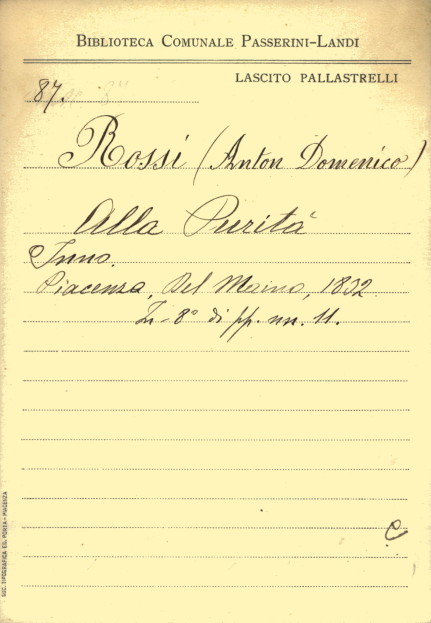 BIBLIOTECA COMUNALE PASSERINI-LANDI
LASCITO PALLASTRELLI
87.
Rossi (Anton Domenico)
Alla Purità
Inno.
Piacenza, Del Maino, 1832
In-8° di pp. nn. 11.
C
SOC. TIPOGRAFICA ED. PORTA-PIACENZA